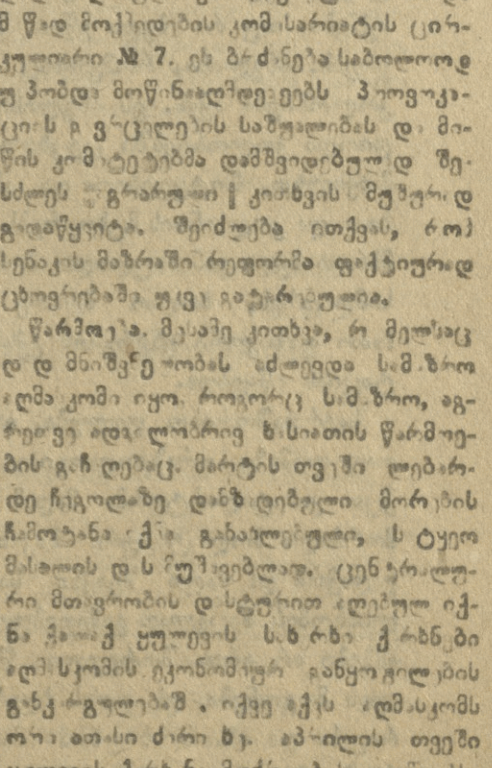 წად მოქმედების კომისარიატის ცირ-
კულიარი № 7. ეს ბრძანება საბოლოოდ
უპობდა მოწინააღმდეგეებს პროვოკა-
ციის გავრცელების საშუალებას და მი-
წის კომიტეტებმა დამშვიდებულად შე-
სძლეს აგრარული კითხვის მუშურად
გადაწყვიტა. შეიძლება ითქვას, რომ
სენაკის მაზრაში რეფორმა ფაქტიურად
ცხოვრებაში უკვე გატარებულია.
წარმოება. მესამე კითხვა, რომელსაც
დიდ მნიშვნელობას აძლევდა სამაზრო
აღმასკომი იყო, როგორც სამაზრო, აგ-
რეთვე ადგილობრივ ხასიათის წარმოე-
ბის გაჩაღებაც. მარტის თვეში ლებარ-
დე ჩეგოლაზე დამზადებული მორების
ჩამოტანა იქნა განახლებული, სატყეო
მასალის დასამუშავებლად. ცენტრალუ-
რი მთავრობის დასტურით აღებულ იქ-
ნა ყულევის სახერხი ქარხნები
აღმასკომის ეკონომიურ განყოფილების
განკარგულებაში. იქვე აქვს აღმასკომს
ორი ათასი ძირი ხე. აპრილის თვეში